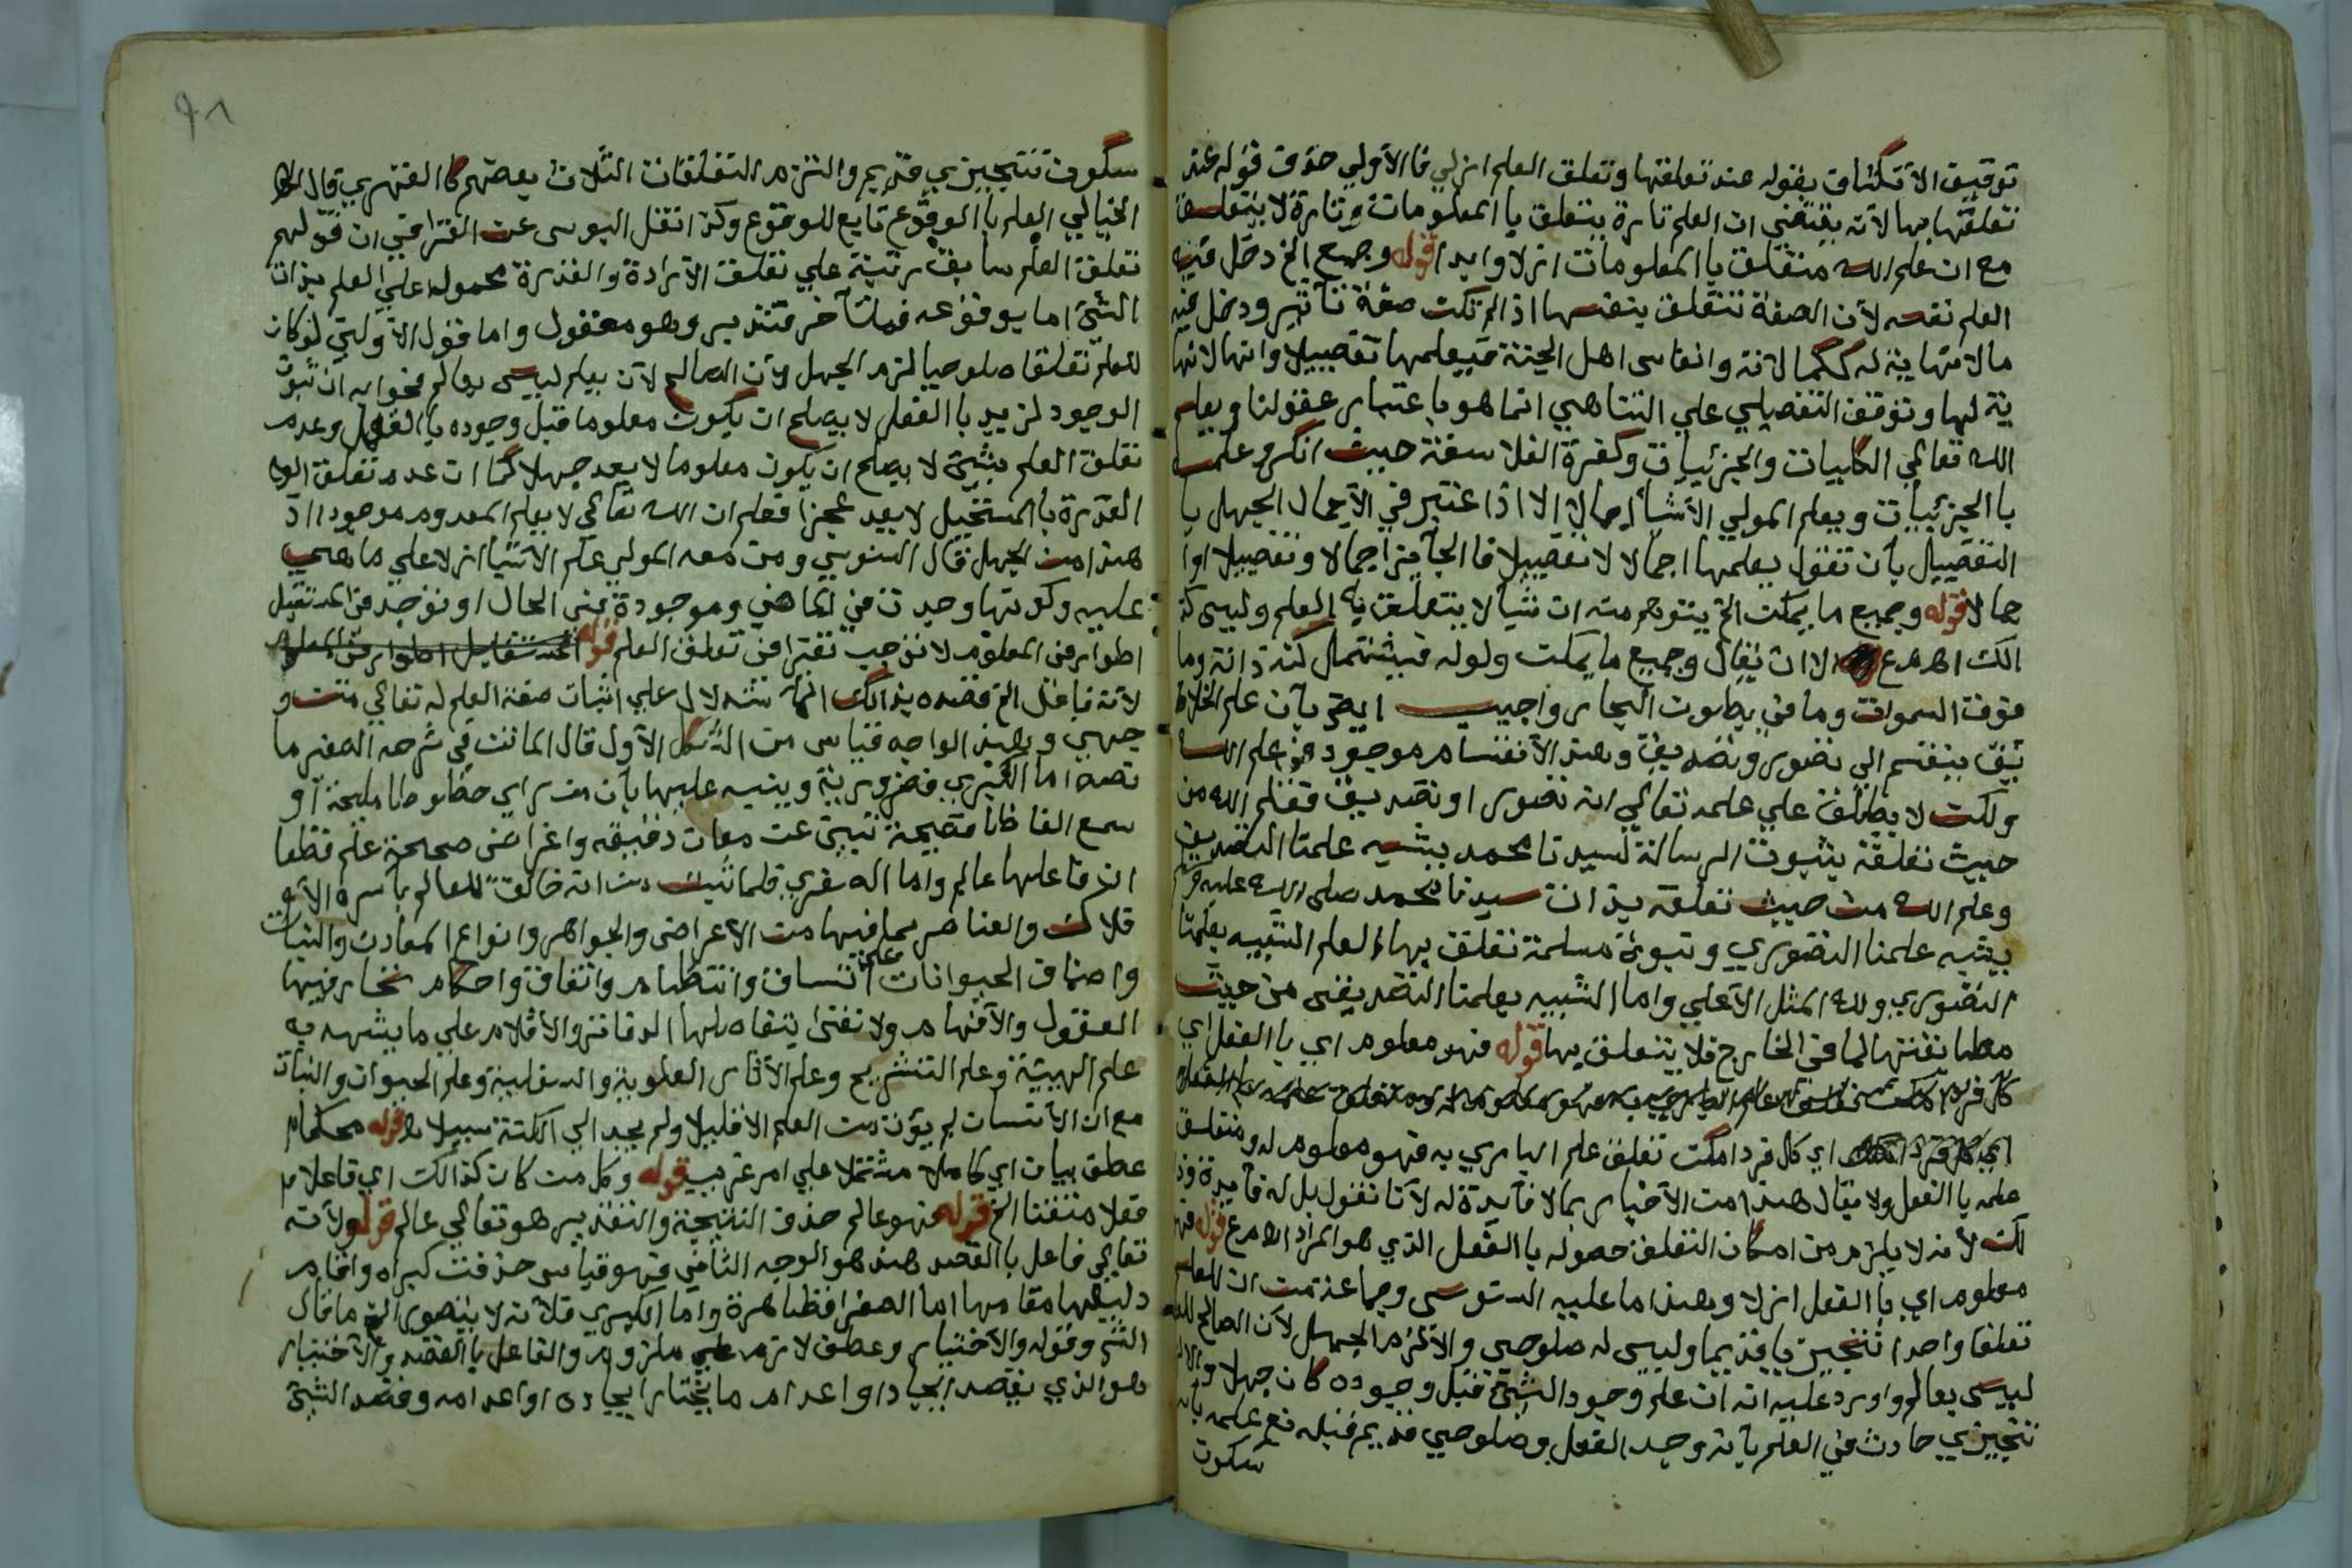 توقيف الانكشاف بقوله عند تعلقها وتعلق العلم ازلي فالاولي حذف قوله عند
تعلقها بها لانه يقتضي ان العلم تارة يتعلق بالمعلومات وتارة لا يتعلق
مع ان علم الله متعلق بالمعلومات ازلا وابدا قوله وجميع الخ دخل فيه
العلم نفسه لان الصفة تتعلق بنفسها اذا لم تكن صفة تاثير ودخل فيه
ما لا نهاية له ككمالاته وانفاس اهل الجنة فيعلمها تفصيلا وانها لا نها
ية لها وتوقف التفصيلي علي التناهي انما هو باعتبار عقولنا ويعلم
الله تعالي الكليات والجزئيات وكفرة الفلاسفة حيث انكروا علمه
بالجزئيات ويعلم المولي الاشيا اجمالا الا اذا اعتبر في الاجمال الجهل با
التفصيل بان تقول يعلمها اجمالا لا تفصيلا فالجايز اجمالا وتفصيلا اوا
جمالا قوله وجميع ما يمكن الخ يتوهم منه ان شيا لا يتعلق به العلم وليس كذ
الك اهـ م ع الا ان يقال وجميع ما يمكن ولوله فيشتمل كنه ذاته وما
فوق السموات وما في بطون البحار واجيب ايضا بان علم الخلا
يق ينقسم الي تصور وتصديق وهذ الانقسام موجود في علم الله
ولكن لا يطلق علي علمه تعالي انه تصور او تصديق فعلم الله من
حيث تعلقه بثبوت الرسالة لسيدنا محمد يشبه علمنا التصديق
وعلم الله من حيث تعلقه بذات سيدنا محمد صلي الله عليه وسلم
يشبه علمنا التصوري وتبوئة مسلمة تعلق بها العلم الشبيه بعلمنا
التصوري ولله المثل الاعلي واما الشبيه بعلمنا التصديقي من حيث
مطابقتها لما في الخارج فلا يتعلق بها قوله فهو معلوم اي بالفعل اي
اي كل فرد امكن تعلق علم الباري به فهو معلوم له ومتعلق
علمه بالفعل ولا يقال هذا من الاخبار بما لا فايدة له لانا نقول بل له فايدة وذ
لك لانه لا يلزم من امكان التعلق حصوله بالفعل الذي هو المراد اهـ م ع قوله فهو
معلوم اي بالفعل ازلا وهذا ما عليه السنوسي وجماعة من ان للعلم
تعلقا واحدا تنجيزيا قديما وليس له صلوحي والا لزم الجهل لان الصالح للعلم
ليس بعالم واورد عليه انه ان علم وجود الشئ قبل وجوده كان جهلا
تنجيزي حادث في العلم بانه وجد بالفعل وصلوحي قديم قبله مع علمه بانه
سكون
سكون تنجيزي قديم والتزم التعلقات الثلاث بعضهم كالفهري قال
الخيالي العلم بالوقوع تابع للوقوع وكذا نقل اليوسي عن القرافي ان قولهم
تعلق العلم سابق رتبة علي تعلق الارادة والقدرة محمول علي العلم بذات
الشئ اما بوقوعه فمتاخر فتدبر وهو معقول واما قول الاولين لو كان
للعلم تعلقا صلوحيا لزم الجهل لان الصالح لان يعلم ليس بعالم فجوابه ان ثبوت
الوجود لزيد بالفعل لا يصلح ان يكون معلوما قبل وجوده بالفعل وعدم
تعلق العلم بشئ لا يصلح ان يكون معلوما لا يعد جهلا كما ان عدم تعلق
القدرة بالمستحيل لا يعد عجزا فعلم ان الله تعالي لا يعلم المعدوم موجودا اذ
هذا من الجهل قال السنوسي ومن معه المولي علم الاشيا ازلا علي ما هي
عليه وكونها وجدت في الماضي وموجودة في الحال او توجد في المستقبل
اطوار في المعلوم لا توجب تغيرا في تعلق العلم قوله
لانه فاعل الخ قصده بذالك الاستدلال علي اثبات صفة العلم له تعالي من و
جهين وهذ الواجه قياس من الشكل الاول قال الماتن في شرحه الصغير ما
نصه اما الكبري فضرورية وينبه عليها بان من راي خطوطا مليحة او
سمع الفاظا فصيحة تنبئ عن معان دقيقه واغراض صحيحة علم قطعا
ان فاعلها عالم واما الصغري فلما ثبت من انه خالق للعالم باسره الا
فلاك والعناصر بما فيها من الاعراض والجواهر وانواع المعادن والنبات
واصناف الحيوانات علي اتساق وانتظام واتقان واحكام تحار فيها
العقول والافهام ولا تفي بتفاصيلها الدفاتر والاقلام علي ما يشهد به
علم الهيئة وعلم التشريح وعلم الاثار العلوية والسفلية وعلم الحيوان والنبات
مع ان الانسان لم يؤت من العلم الا قليلا ولم يجد الي الكثير سبيلا اهـ قوله محكما
عطف بيان اي كاملا مشتملا علي امر غريب قوله وكل من كان كذالك اي فاعلا
فعلا متقنا الخ قوله فهو عالم حذف النتيجة والتقدير هو تعالي عالم قوله ولانه
تعالي فاعل بالقصد هذ هو الوجه الثاني فهو قياس حذفت كبراه واقام
دليلها مقامها اما الصغرا فظاهرة واما الكبري فلانه لا يتصور الخ ما قال
الش وقوله والاختيار وعطف لازم علي ملزوم والفاعل بالقصد والاختيار
هو الذي يقصد ايجاد او اعدام ما يختار ايجاده او اعدامه وقصد الشئ